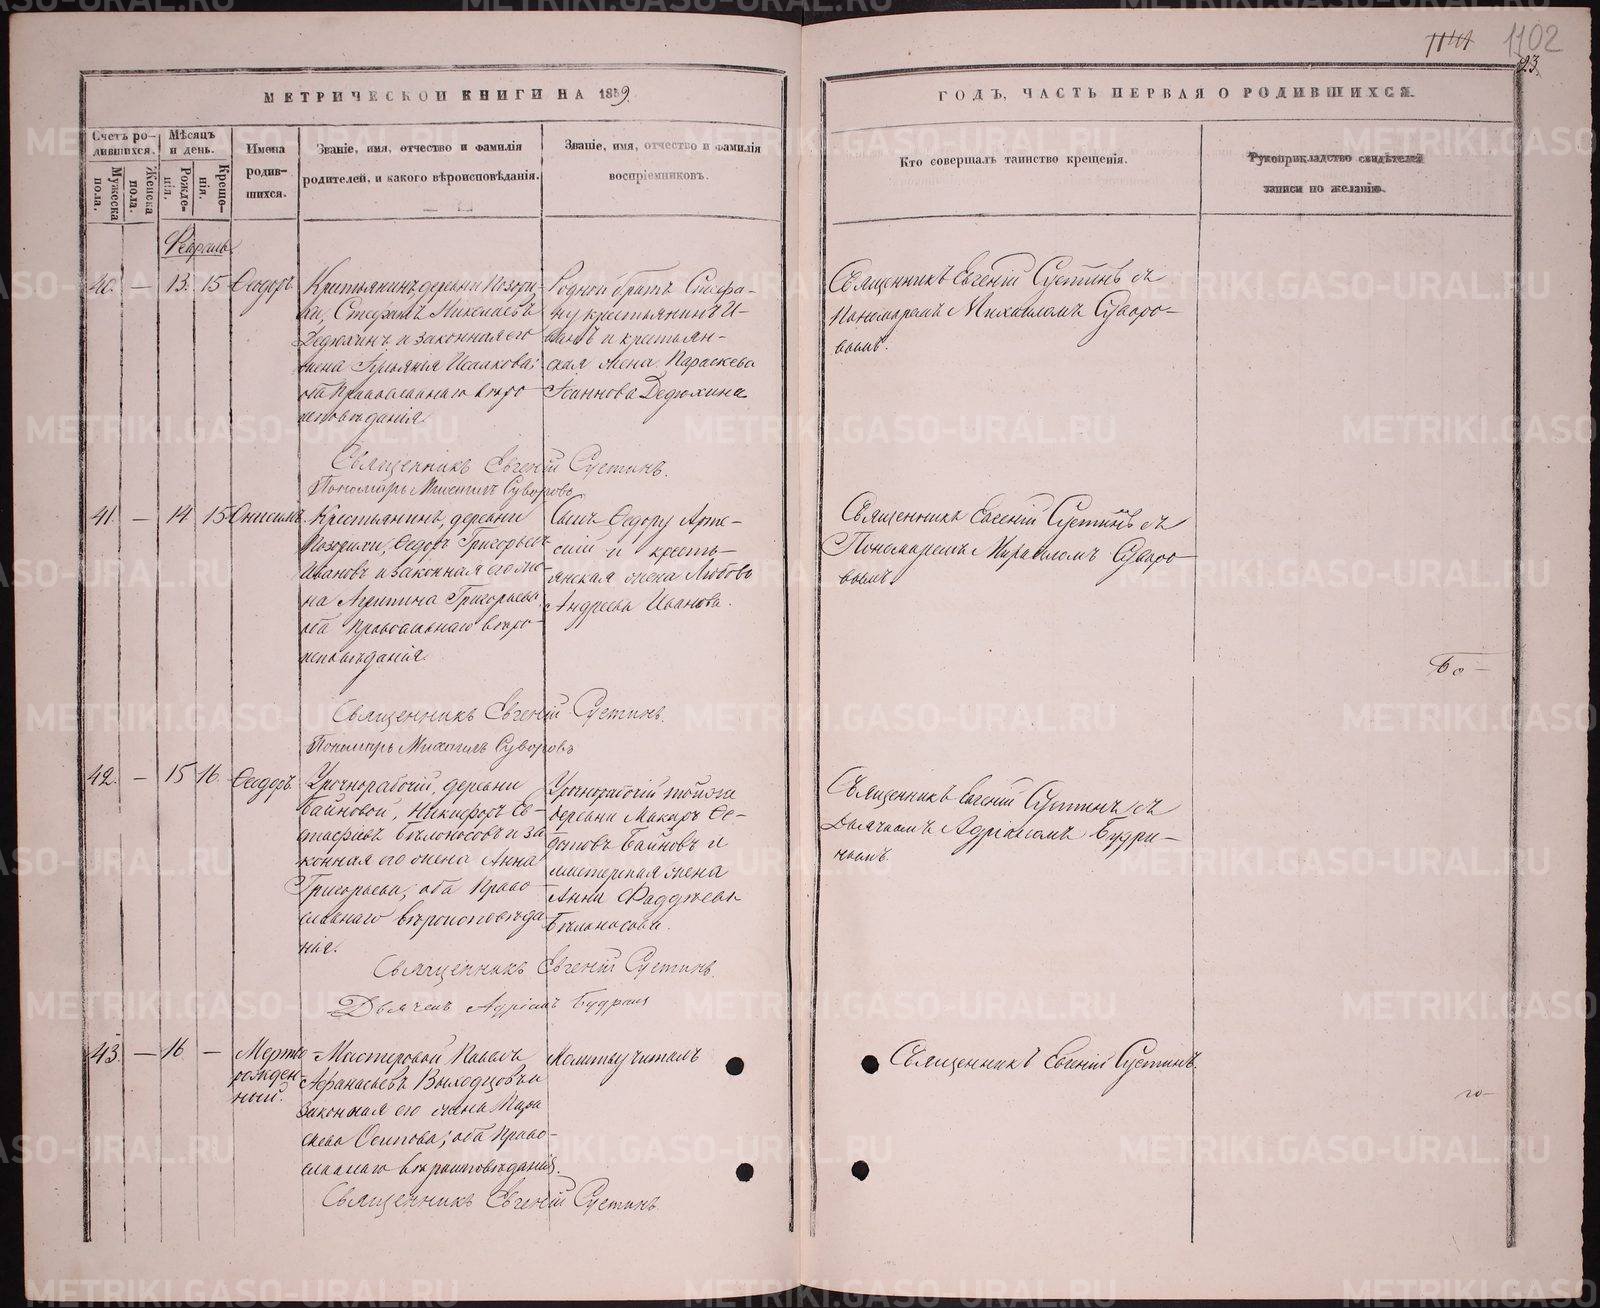 1102
23.
МЕТРИЧЕСКОИ КНИГИ НА 1859.
ГОДЪ, ЧАСТЬ ПЕРВАЯ О РОДИВШИХСЯ.
Счетъ ро-
дившихся.
Мужеска
пола.
Женска
пола.
Мѣсяцъ
и день.
Рожде-
нія.
Креще-
нія.
Имена
родив-
шихся.
Званіе, имя, отчество и фамилія
родителей, и какого вѣроисповѣданія.
Званіе, имя, отчество и фамилія
воспріемниковъ.
Кто совершалъ таинство крещенія.
Рукоприкладство свидѣтелей
записи по желанію.
Февраль
40. — 13. 15 Ѳеодоръ
Крестьянинъ деревни Позори-
хи, Стефанъ Николаевъ
Дедюхинъ и законная его
жена Исаакова;
оба Православнаго вѣро
исповѣданія.
Родной братъ Стефа-
ну крестьянинъ И-
ванъ и крестьян-
ская жена Параскева
Іоаннова Дедюхина
Священникъ Евгеній Сустинъ съ
Пономаремъ Михаиломъ Суворо-
вымъ.
Священникъ Евгеній Сустинъ.
Пономарь Михаилъ Суворовъ
41. — 14 15 Онисимъ.
Крестьянинъ, деревни
Позорихи, Ѳедоръ Григорьевъ
Ивановъ и законная его же-
на Агрипина Григорьева
оба Православнаго вѣро-
исповѣданія.
Сынъ Ѳедору Арте-
мій и кресть-
янская жена Любовь
Андреева Иванова.
Священникъ Евгеній Сустинъ съ
Пономаремъ Михаиломъ Суворо-
вымъ
Священникъ Евгеній Сустинъ.
Пономарь Михаилъ Суворовъ
42. — 15 16 Ѳеодоръ
Урочнорабочій, деревни
Байновой, Никифоръ Ев-
стафіевъ Бѣлоносовъ и за
конная его жена Анна
Григорьева; оба Право-
славнаго вѣроисповѣда
нія.
Урочнорабочій тойже
деревни Макаръ Ѳе-
дотовъ Байновъ и
мастерская жена
Анна Фаддѣева
Бѣлоносова.
Священникъ Евгеній Сустинъ съ
Дьячкомъ Адріаномъ Будри-
нымъ.
Священникъ Евгеній Сустинъ.
Дьячекъ Адріанъ Будринъ
43. — 16 — Мертво
рожден-
ный.
Мастеровой Павелъ
Афанасьевъ Выходцовъ и
законная его жена Пара
скева Осипова; оба Право-
славнаго вѣроисповѣданія.
Молитву читалъ
Священникъ Евгеній Сустинъ.
Священникъ Евгеній Сустинъ.
METRIKI.GASO-URAL.RU